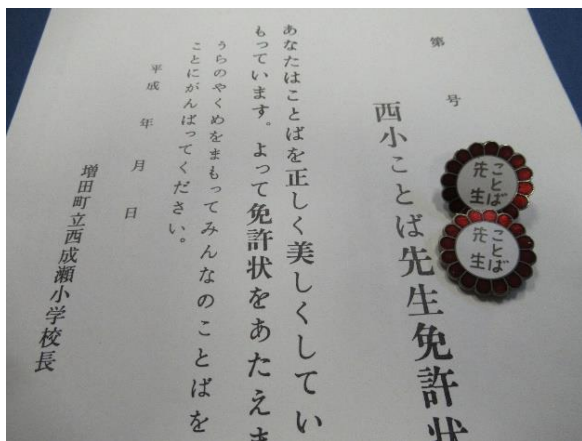 第　号
西小ことば先生免許状
あなたはことばを正しく美しくしてい
もっています。よって免許状をあたえま
うらのやくめをまもってみんなのことばを
ことにがんばってください。
平成　年　月　日
増田町立西成瀬小学校長
ことば
先生
ことば
先生